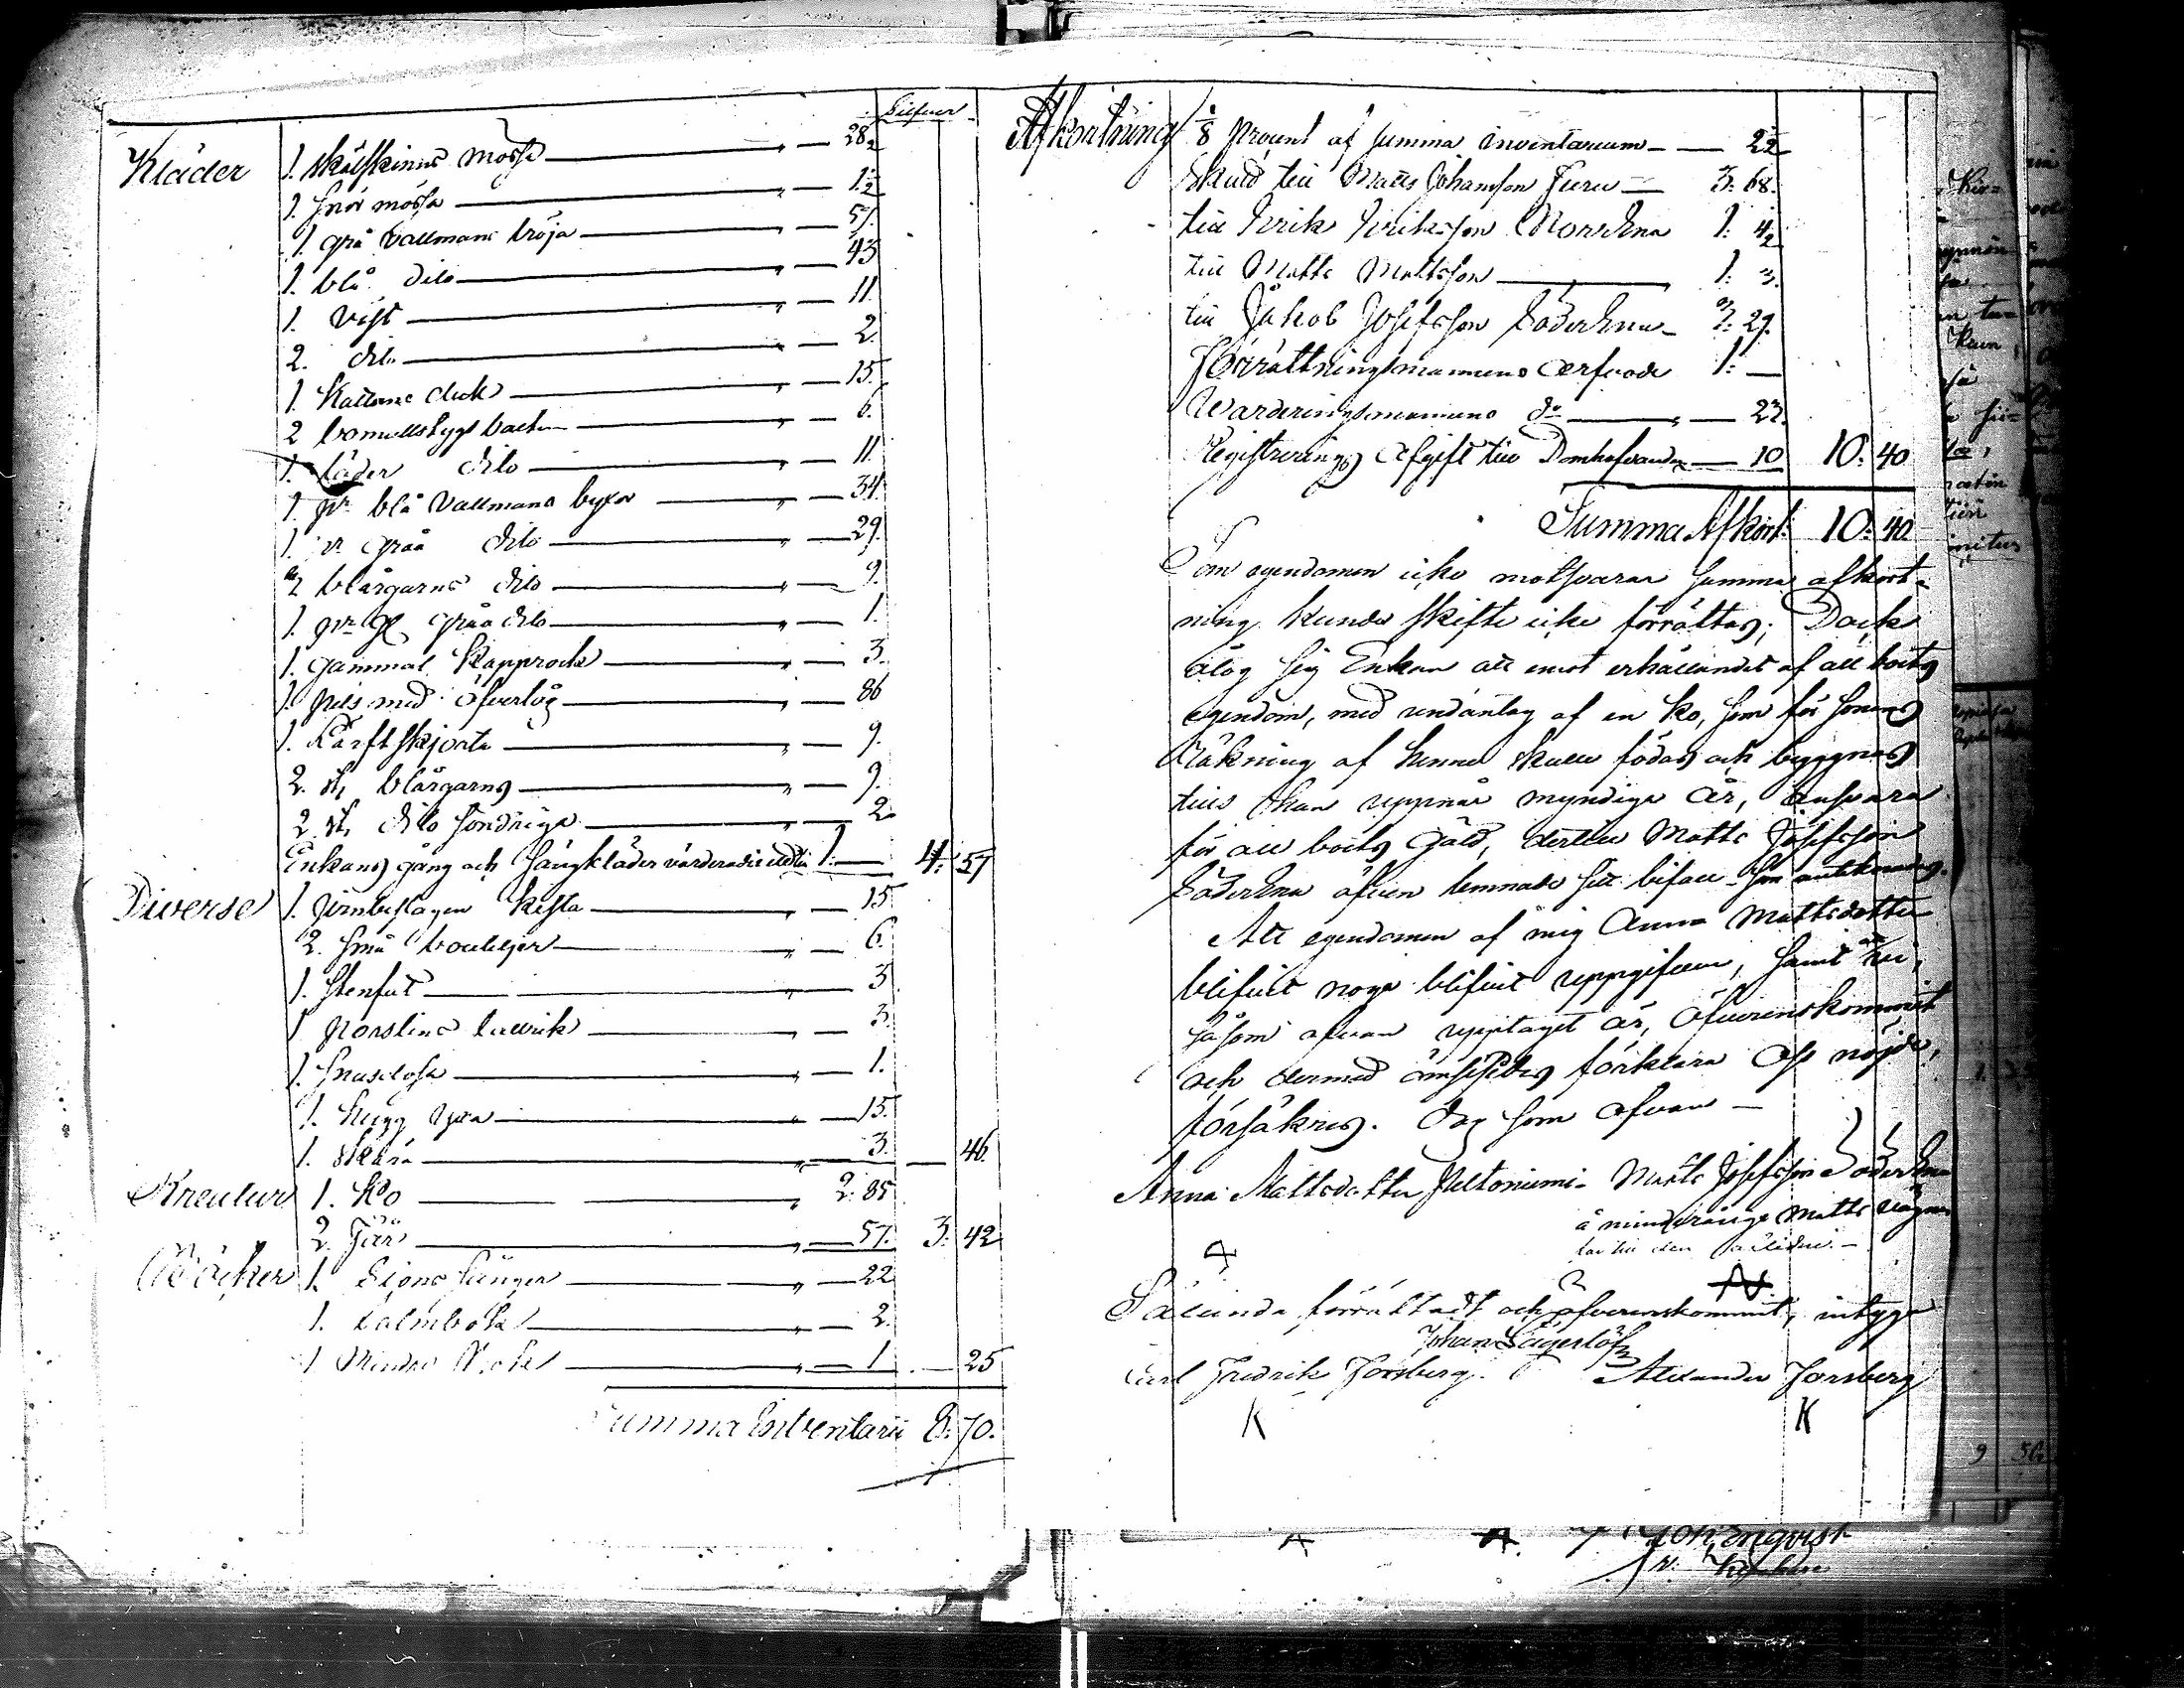 Silfver
Kläder 1. skälskinns mössa — " — 28½
1. snör mössa — " — 1½
1. grå vallmans tröja — " — 57.
1. blå dito — " — 43
1. väst — " — 11.
2. dito — " — 2.
1. Kattuns duk — " — 15.
2 bomullstygs — " — 6.
1. läder dito — " — 11.
1. pr blå vallmans byxor — " — 34.
1. pr gråa dito — " — 29.
2 blårgarns dito — " — 9.
1. pr gl gråa dito — " — 1.
1. gammal Kapprock — " — 3.
1. pels med öfvertåg — " — 86
1. Lärft skjorta — " — 9.
2. st, blårgarns — " — 9.
2. st, dito söndriga — " — 2
Enkans gång och sängkläder värderades till 1. — 4. 57
Diverse 1. järnbeslagen kista — " — 15
2. små bouteljer — " — 6.
1. stenfat — " — 3
1 porslins tallrik — " — 3.
1. snusdosa — " — 1.
1. hugg yxa — " — 15.
1. skära — " — 3. — 46.
Kreatur 1. Ko — " 2. 85
2. Får — " — 57. 3. 42
Böcker 1. Sions sånger — " — 22
1. Salmbok — " — 2.
1 Mindre Bok — " — 1 — 25
Summa Inventarii 8. 70.
Afkortning 1/8 procent af summa inventarium — 22
Skuld till Matts Johansson Furu — 3. 68.
till Erik Eriksson NorrEna 1. 4½
till Matts Mattsson — 1. 3.
till Jakob Josefsson SöderEna — 2. 29.
Förrättningsmannens arfvode 1. —
Värderingsmannens do — " — 23.
Registrerings afgift till Domhafvanden — 10 10. 40
Summa Afkort. 10. 40
Som egendomen icke motsvarar summa afkort-
ning kunde skifte icke förrättas; Dock
ålog sig Enkan att emot erhållandet af all boets
egendom, med undantag af en ko, som för sonens
räkning af henne skulle födas och
tills han uppnår myndiga år, ansvara
för all boets gäld, dertill Matts Josefsson
SöderEna äfven lemnade sitt bifall som antecknades.
Att egendomen af mig Anna Mattsdotter
blifvit noga blifvit uppgifven, samt att vi,
såsom ofvan upptaget är, öfverenskommit
och dermed ömsesides förklara oss nöjde,
försäkras. Dag som ofvan —
Anna Mattsdotter Peltoniemi. Matts Josefsson SöderEna
å minderårige Matts vägnar
Sålunda förrättadt och öfverenskommit, intyga
Johan Lagerlöf
Carl Fredrik Forsberg. Alexander Forsberg
K K